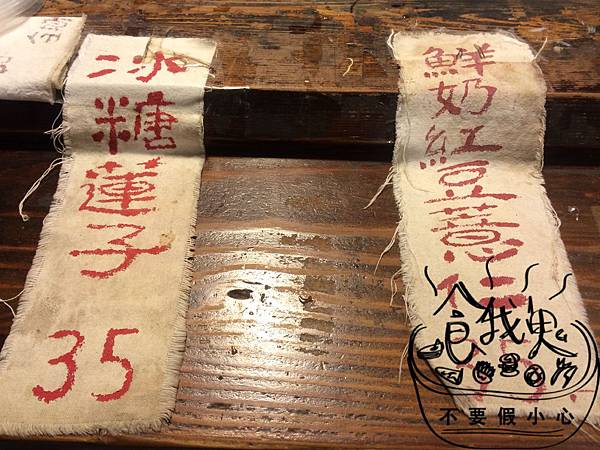 冰糖蓮子
35
鮮奶紅豆薏仁
食我魂
不要假小心